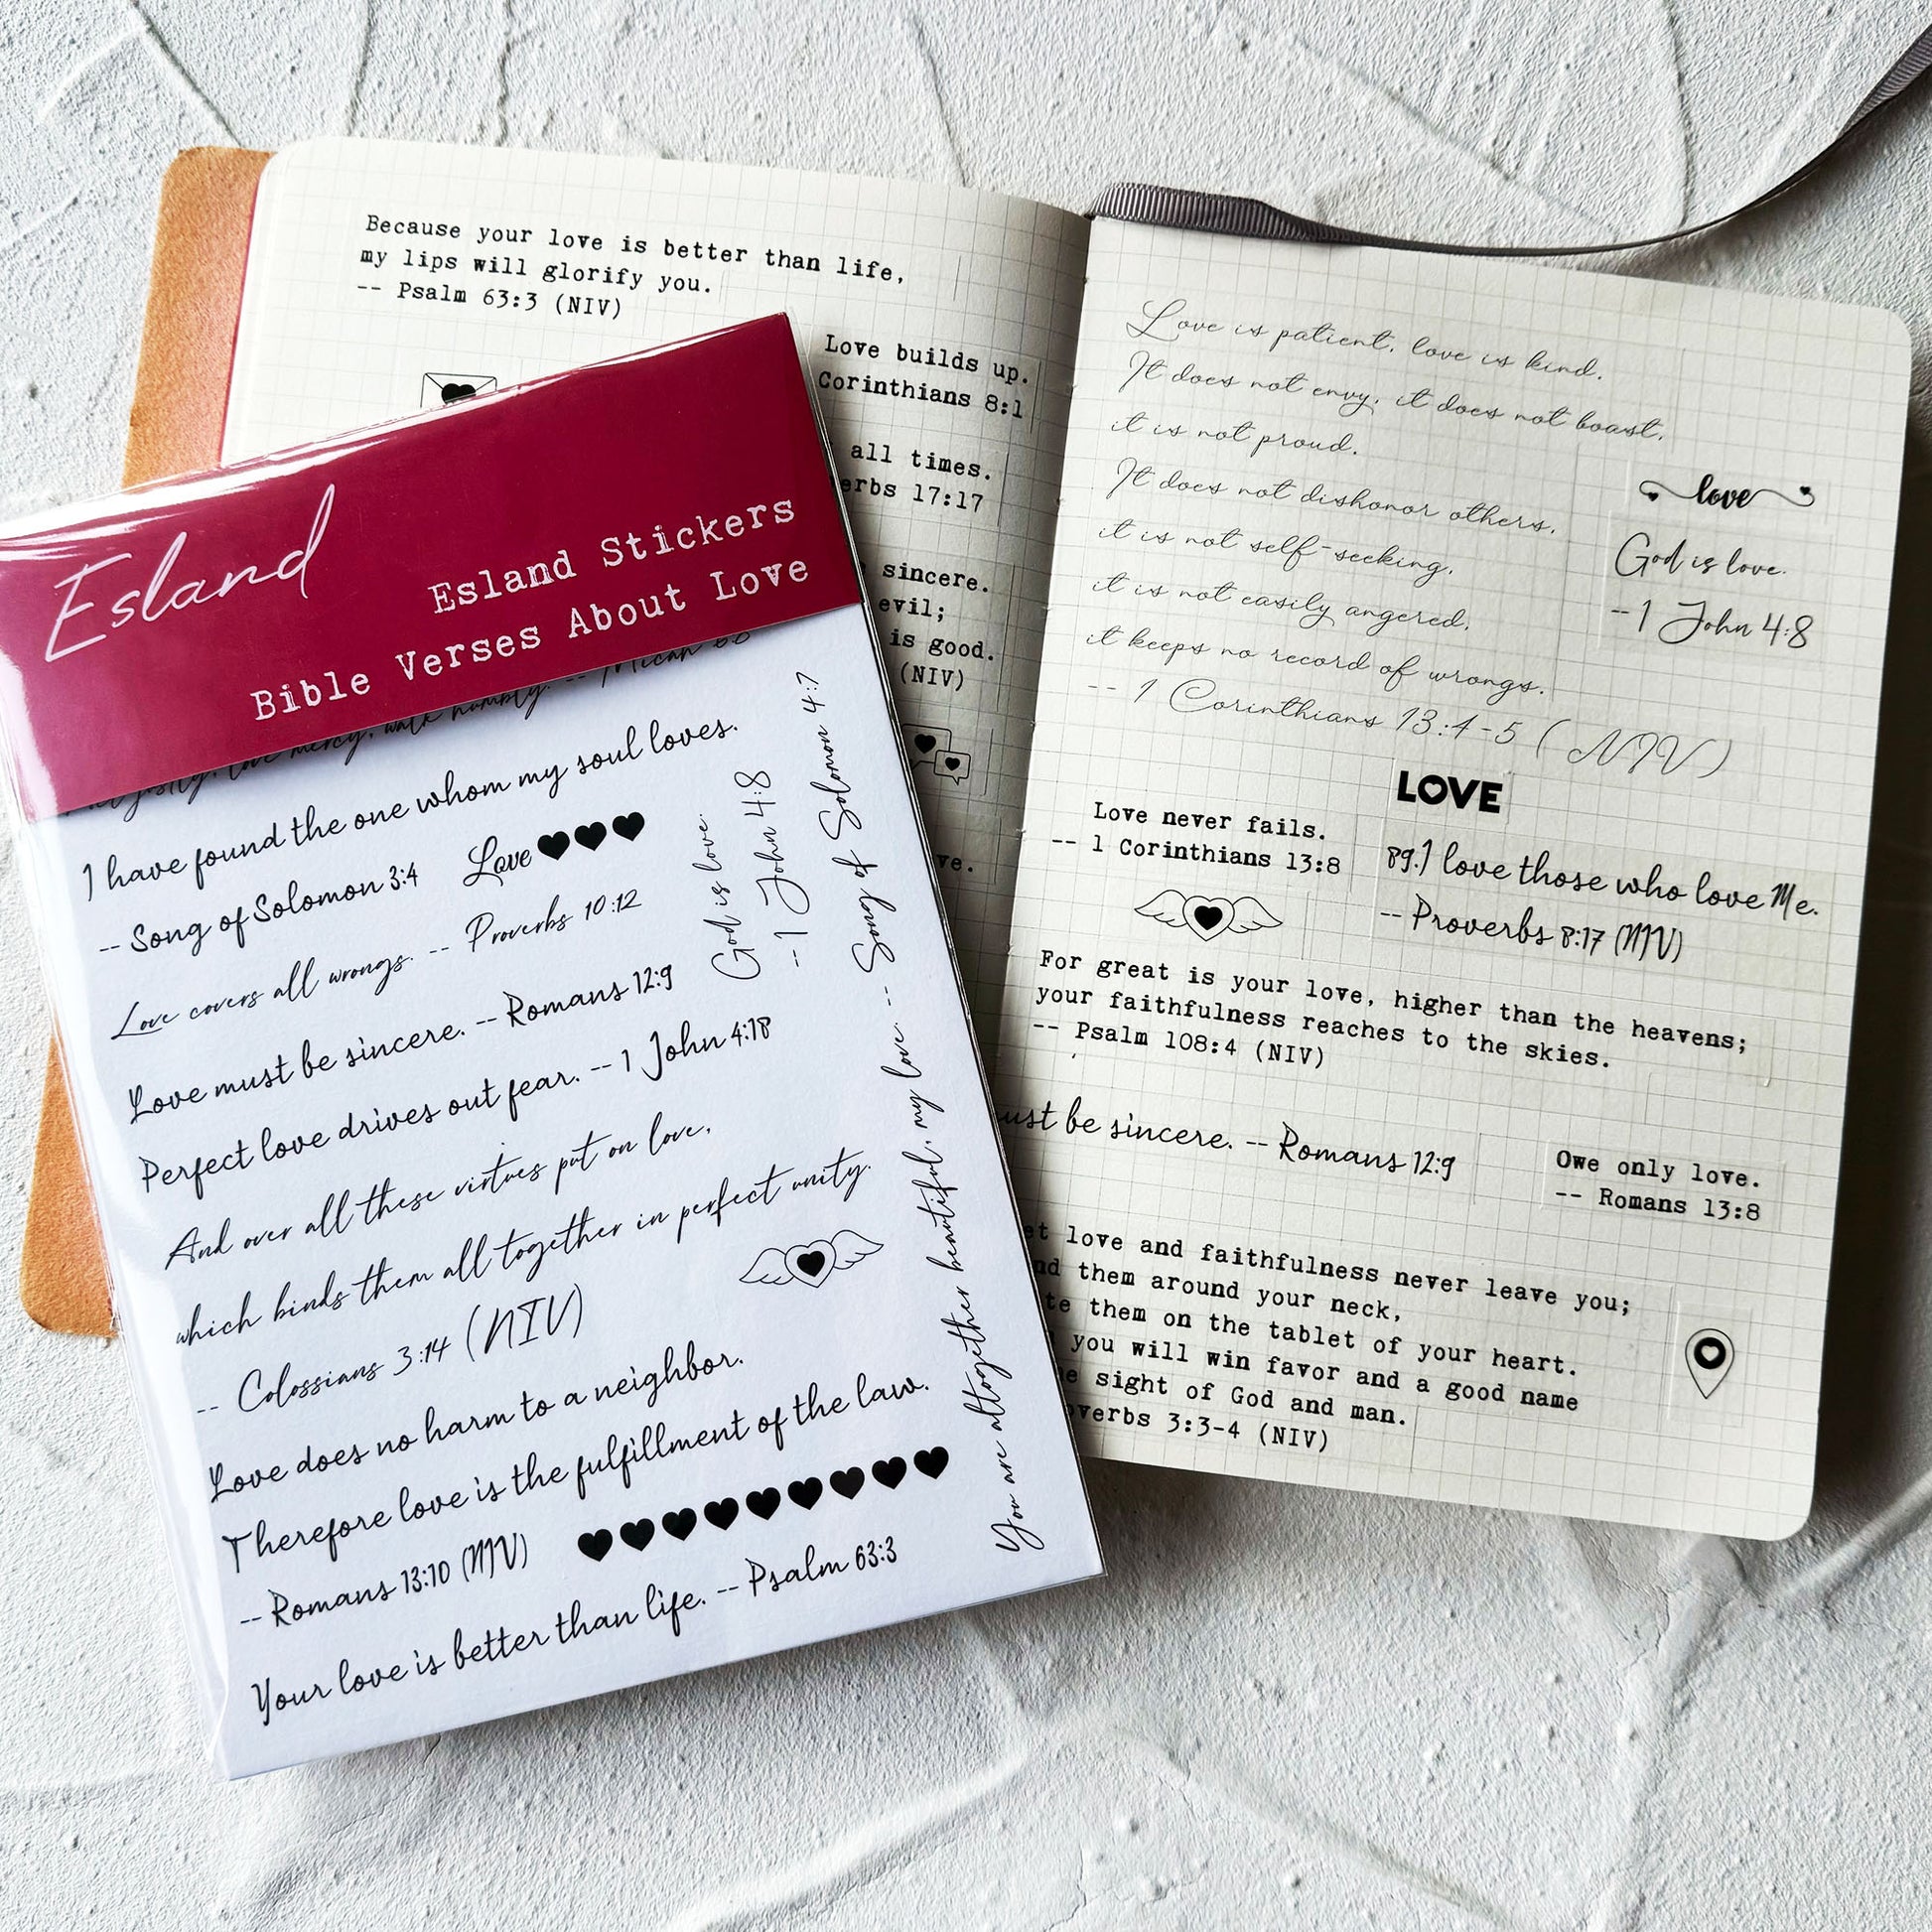 Because your love is better than life,
my lips will glorify you.
-- Psalm 63:3 (NIV)
Love builds up.
Corinthians 8:1
all times.
17:17
sincere.
evil;
is good.
(NIV)
Esland
Esland Stickers
Bible Verses About Love
mercy, walk humbly. -- Micah 6:8
I have found the one whom my soul loves.
-- Song of Solomon 3:4
Love
Love covers all wrongs. -- Proverbs 10:12
Love must be sincere. -- Romans 12:9
Perfect love drives out fear. -- 1 John 4:18
And over all these virtues put on love,
which binds them all together in perfect unity.
-- Colossians 3:14 (NIV)
Love does no harm to a neighbor.
Therefore love is the fulfillment of the law.
-- Romans 13:10 (NIV)
Your love is better than life. -- Psalm 63:3
God is love.
--1 John 4:8
You are altogether beautiful, my love. -- Song of Solomon 4:7
Love is patient, love is kind.
It does not envy, it does not boast,
it is not proud.
It does not dishonor others,
it is not self-seeking,
it is not easily angered,
it keeps no record of wrongs.
-- 1 Corinthians 13:4-5 (NIV)
love
God is love.
--1 John 4:8
LOVE
Love never fails.
-- 1 Corinthians 13:8
89.I love those who love Me.
-- Proverbs 8:17 (NIV)
For great is your love, higher than the heavens;
your faithfulness reaches to the skies.
-- Psalm 108:4 (NIV)
be sincere. -- Romans 12:9
Owe only love.
-- Romans 13:8
love and faithfulness never leave you;
them around your neck,
them on the tablet of your heart.
you will win favor and a good name
sight of God and man.
3:3-4 (NIV)